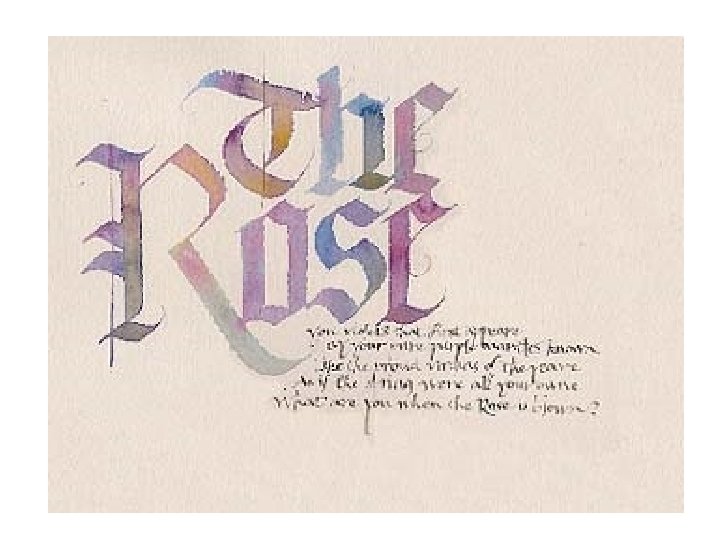 The
Rose
You violets that first appeare
By your pure purple mantles known
Like the proud virgins of the yeare
As if the spring were all your owne
What are you when the Rose is blown?